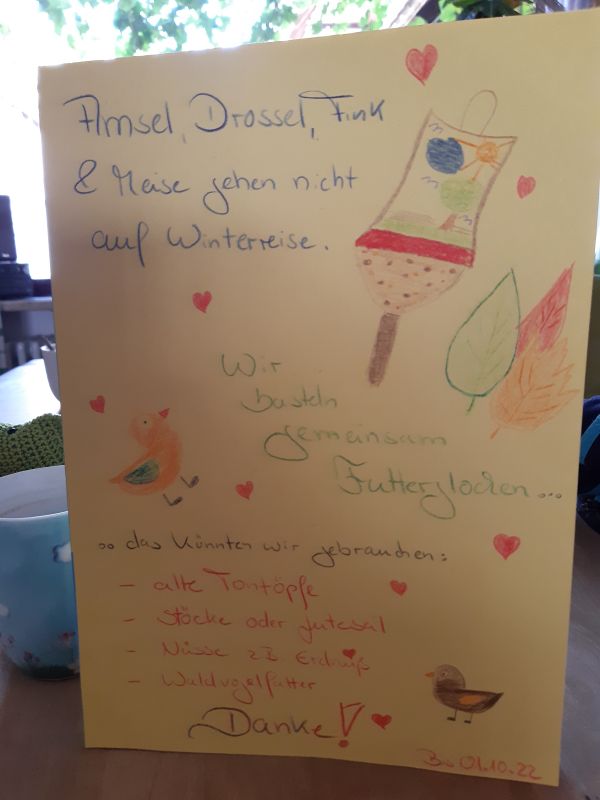 Amsel, Drossel, Fink
& Meise gehen nicht
auf Winterreise.
Wir
basteln
gemeinsam
Futterglocken...
.. das könnten wir gebrauchen:
- alte Tontöpfe
- Stöcke oder Juteseil
- Nüsse zB Erdnuß
- Waldvogelfutter
Danke!
Bis 01.10.22